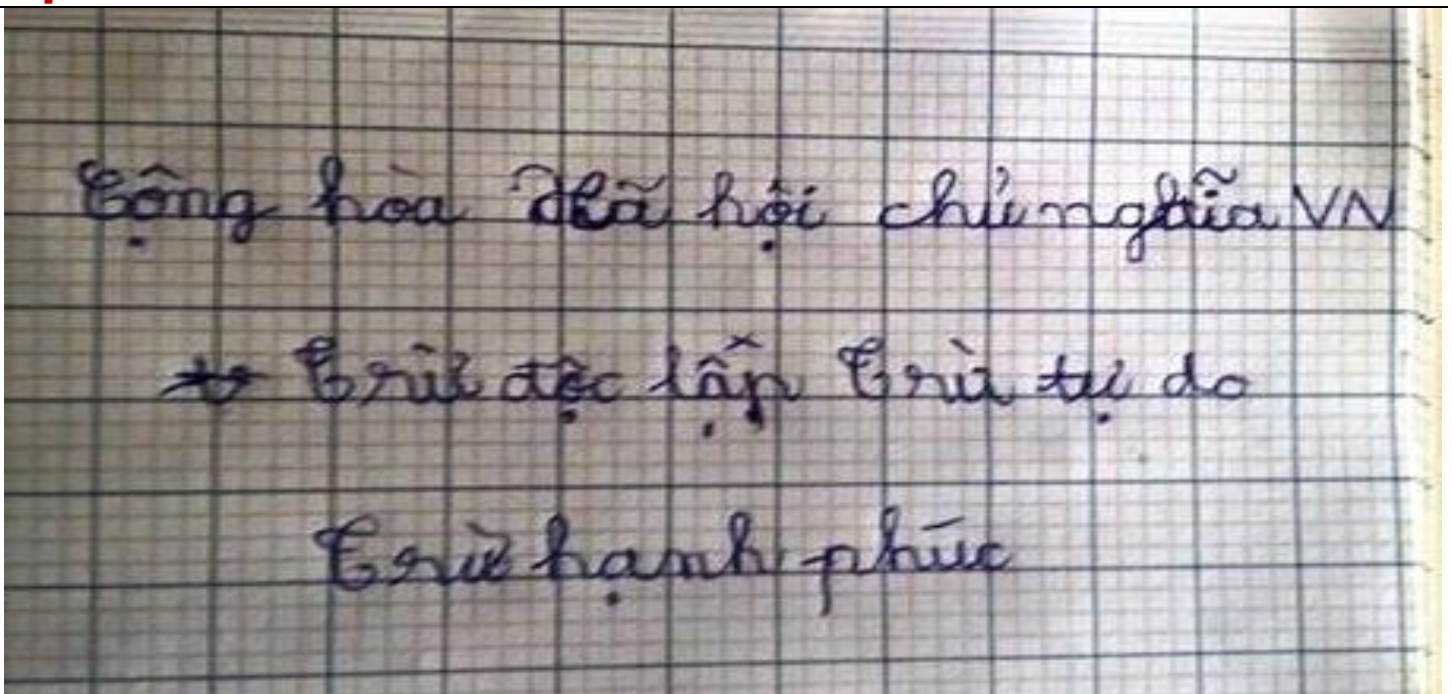 Cộng hòa Xã hội chủ nghĩa VN
Trừ độc lập Trừ tự do
Trừ hạnh phúc